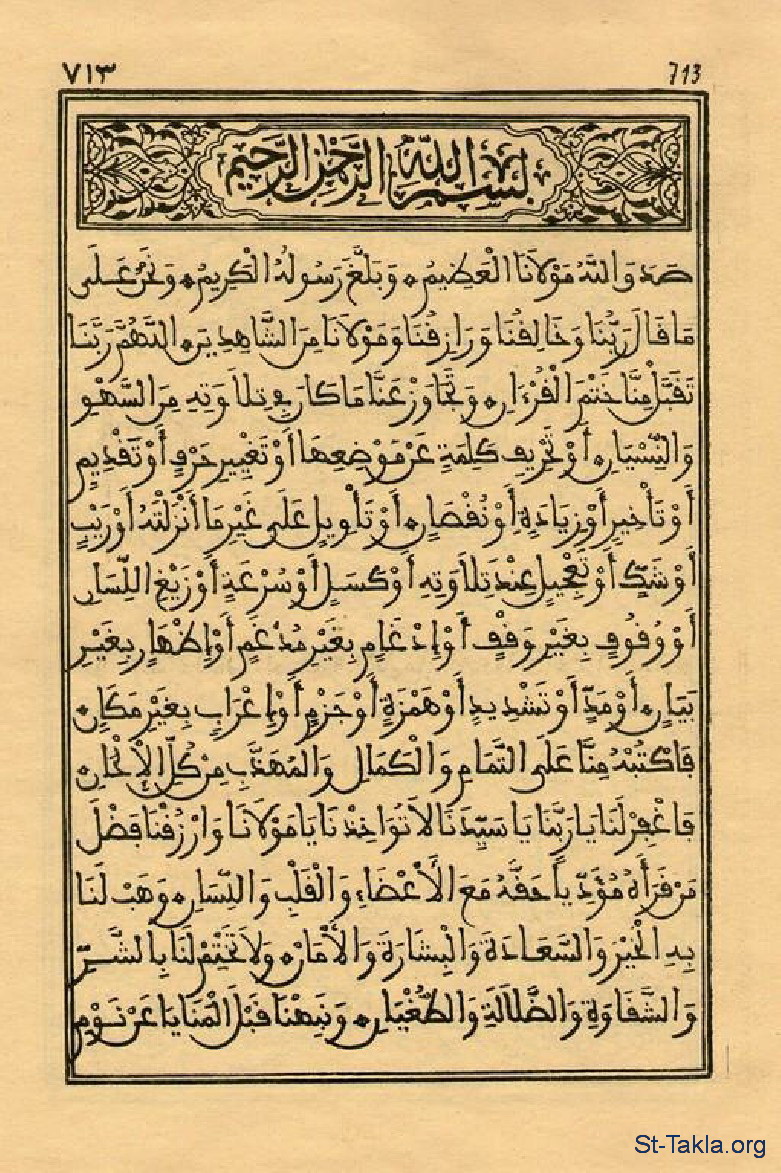 ٧١٣ 713
بِسْمِ اللَّهِ الرَّحْمَٰنِ الرَّحِيمِ
صَدَقَ اللَّهُ مَوْلَانَا الْعَظِيمُ وَبَلَّغَ رَسُولُهُ الْكَرِيمُ وَنَحْنُ عَلَى
مَا قَالَ رَبُّنَا وَخَالِقُنَا وَرَازِقُنَا وَمَوْلَانَا مِنَ الشَّاهِدِينَ اللَّهُمَّ رَبَّنَا
تَقَبَّلْ مِنَّا خَتْمَ الْقُرْءَانِ وَتَجَاوَزْ عَنَّا مَا كَانَ فِي تِلَاوَتِهِ مِنَ السَّهْوِ
وَالنِّسْيَانِ أَوْ تَحْرِيفِ كَلِمَةٍ عَنْ مَوْضِعِهَا أَوْ تَغْيِيرِ حَرْفٍ أَوْ تَقْدِيمٍ
أَوْ تَأْخِيرٍ أَوْ زِيَادَةٍ أَوْ نُقْصَانٍ أَوْ تَأْوِيلٍ عَلَى غَيْرِ مَا أَنْزَلْتَهُ أَوْ رَيْبٍ
أَوْ شَكٍّ أَوْ تَعْجِيلٍ عِنْدَ تِلَاوَتِهِ أَوْ كَسَلٍ أَوْ سُرْعَةٍ أَوْ زَيْغِ اللِّسَانِ
أَوْ وُقُوفٍ بِغَيْرِ وَقْفٍ أَوْ إِدْغَامٍ بِغَيْرِ مُدْغَمٍ أَوْ إِظْهَارٍ بِغَيْرِ
بَيَانٍ أَوْ مَدٍّ أَوْ تَشْدِيدٍ أَوْ هَمْزَةٍ أَوْ جَزْمٍ أَوْ إِعْرَابٍ بِغَيْرِ مَكَانٍ
فَاكْتُبْهُ مِنَّا عَلَى التَّمَامِ وَالْكَمَالِ وَالْمُهَذَّبِ مِنْ كُلِّ الْإِلْحَانِ
فَاغْفِرْ لَنَا يَا رَبَّنَا يَا سَيِّدَنَا لَا تُوَاخِذْنَا يَا مَوْلَانَا وَارْزُقْنَا فَضْلَ
مَنْ قَرَأَهُ مُؤَدِّياً حَقَّهُ مَعَ الْأَعْضَاءِ وَالْقَلْبِ وَاللِّسَانِ وَهَبْ لَنَا
بِهِ الْخَيْرَ وَالسَّعَادَةَ وَالْبِشَارَةَ وَالْأَمَانَ وَلَا تَخْتِمْ لَنَا بِالشَّرِّ
وَالشَّقَاوَةِ وَالضَّلَالَةِ وَالطُّغْيَانِ وَنَبِّهْنَا قَبْلَ الْمَنَايَا عَنْ نَوْمِ
St-Takla.org